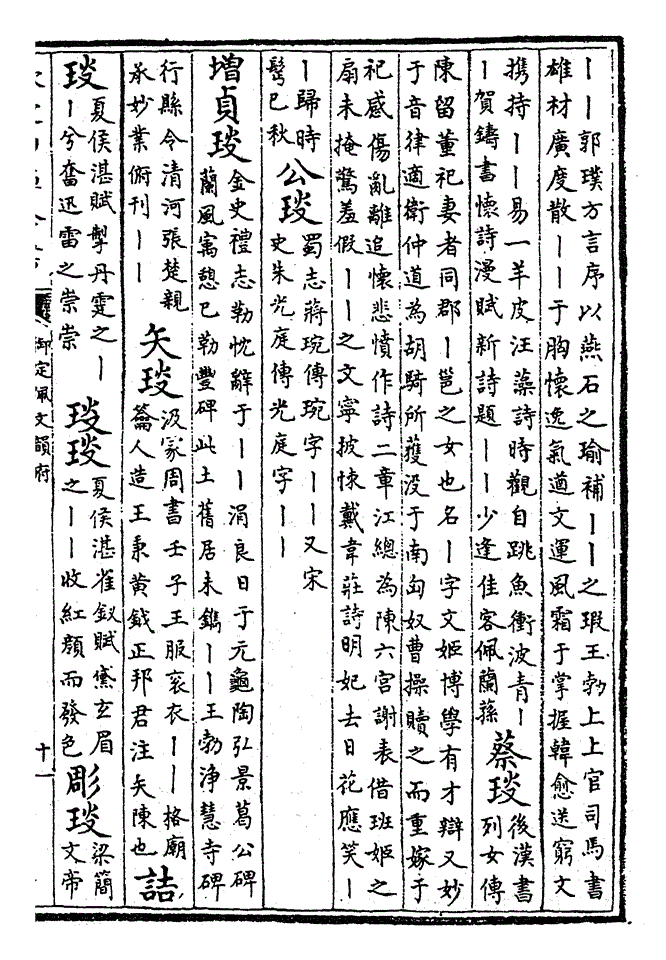 ｜｜郭璞方言序以燕石之瑜補｜｜之瑕王勃上上官司馬書
雄材廣度散｜｜于胸懷逸氣遒文運風霜于掌握韓愈送窮文
攜持｜｜易一羊皮汪藻詩時觀自跳魚衝波青｜
｜賀鑄書懷詩漫賦新詩題｜｜少逢佳客佩蘭蓀
蔡琰
後漢書
列女傳
陳留董祀妻者同郡｜邕之女也名｜字文姬博學有才辯又妙
于音律適衛仲道為胡騎所獲沒于南匈奴曹操贖之而重嫁于
祀感傷亂離追懷悲憤作詩二章江總為陳六宮謝表借班姬之
扇未掩驚羞假｜｜之文寧披悚戴韋莊詩明妃去日花應笑｜
｜歸時
髩已秋
公琰
蜀志蔣琬傳琬字｜｜又宋
史朱光庭傳光庭字｜｜
增貞琰
金史禮志勒忱辭于｜｜涓良日于元龜陶弘景葛公碑
蘭風寓憩已勒豐碑此土舊居未鐫｜｜王勃淨慧寺碑
行縣令清河張楚親
承妙業俯刊｜｜
矢琰
汲冢周書壬子王服衮衣｜｜格廟
籥人造王秉黄鉞正邦君注矢陳也
喆
琰
夏侯湛賦掣丹霆之｜
｜兮奮迅雷之崇崇
琰琰
夏侯湛雀釵賦黛玄眉
之｜｜收紅顔而發色
彫琰
梁簡
文帝
御定佩文韻府
十一